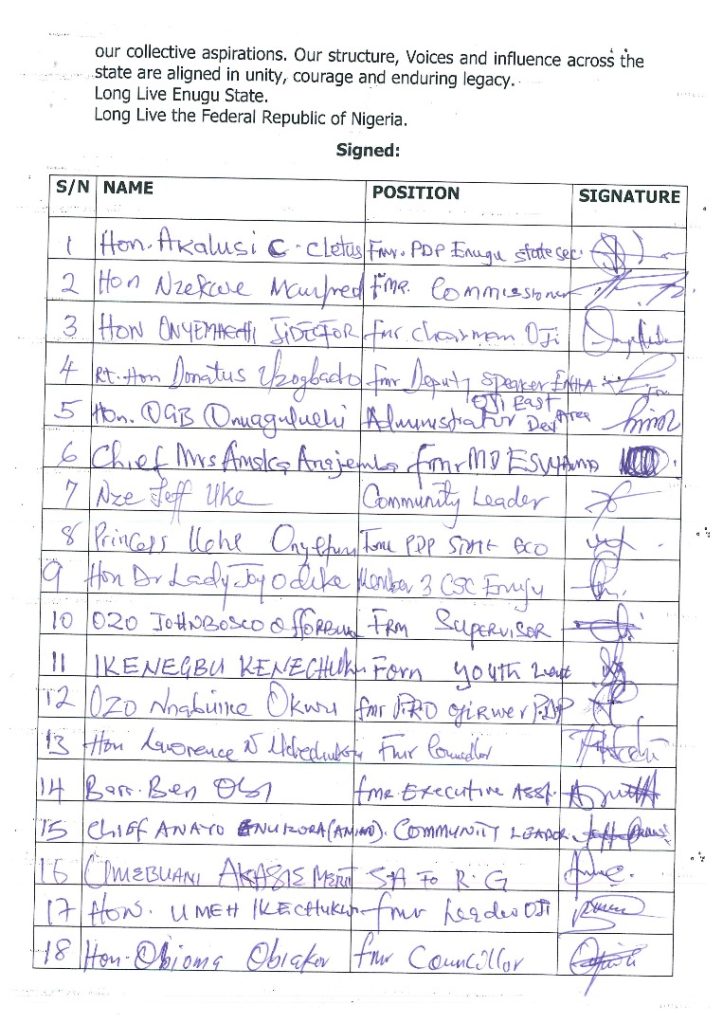 our collective aspirations. Our structure, Voices and influence across the
state are aligned in unity, courage and enduring legacy.
Long Live Enugu State.
Long Live the Federal Republic of Nigeria.
Signed:
S/N NAME POSITION SIGNATURE
1 Hon. Akalusi C. Cletus Fmr. PDP Enugu state sec.
2 Hon Nzekwe Manfred Fmr. Commissioner
3 HON ONYEMAECHI fmr Chairman OJI
4 Rt. Hon Donatus Uzogbado fmr Deputy Speaker ENHA
5 Hon. OGB Administrator Oji East Dev Area
6 Chief Mrs Amaka Anajemba fmr MD
7 Nze Jeff Uke Community Leader
8 Princess Uche PDP State
9 Hon Dr Lady Joy Odike Member 3 CSC Enugu
10 OZO JOHNBOSCO FRM SUPERVISOR
11 IKENEGBU KENECHUKWU Form youth
12 OZO Okwu fmr PRO PDP
13 Hon Lawrence N Fmr Councillor
14 Barr. Ben fmr. Executive Asst.
15 CHIEF ANAYO COMMUNITY LEADER
16 SA To R. G
17 HON. UMEH IKECHUKWU fmr Leader OJI
18 Hon. Obioma Obiakor fmr Councillor